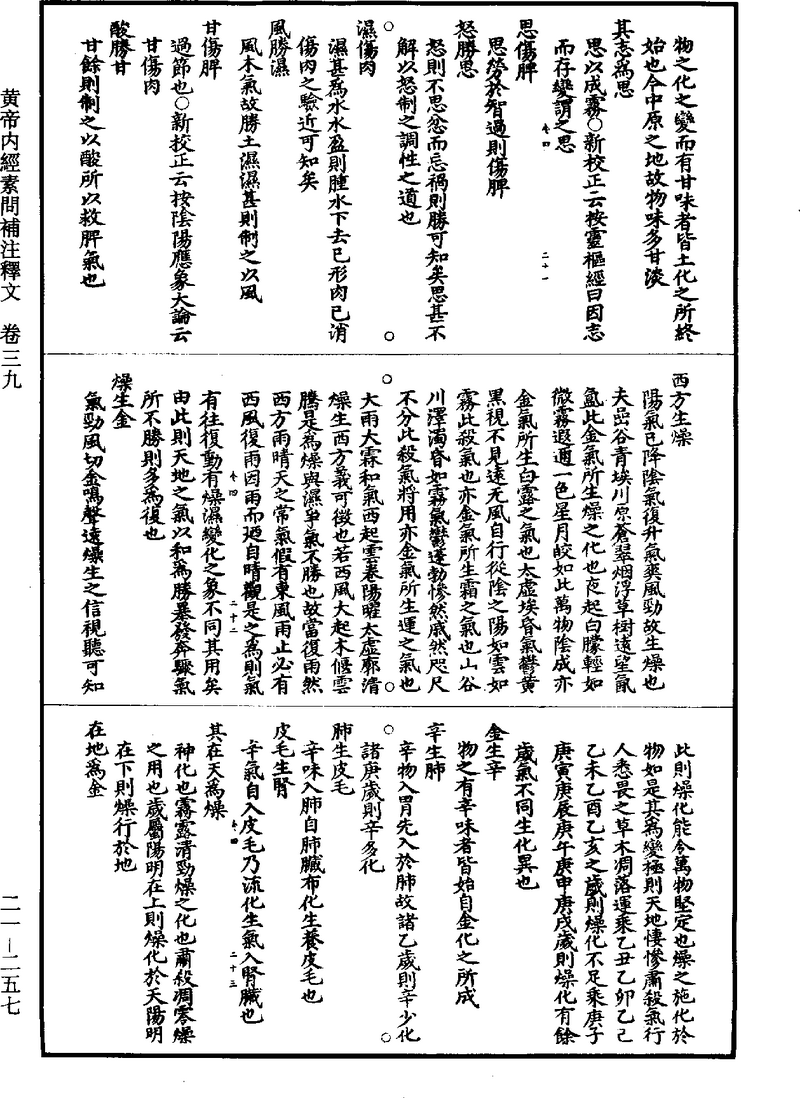 黄帝内經素問補注釋文　卷三九
物之化之變而有甘味者皆土化之所終
始也今中原之地故物味多甘淡
其志爲思
思以成霧○新校正云按靈樞經曰因志
而存變謂之思
思傷脾
思勞於智過則傷脾
怒勝思
怒則不思忿而忘禍則勝可知矣思甚不
解以怒制之調性之道也
濕傷肉
濕甚爲水水盈則腫水下去已形肉已消
傷肉之驗近可知矣
風勝濕
風木氣故勝土濕濕甚則制之以風
甘傷脾
過節也○新校正云按陰陽應象大論云
甘傷肉
酸勝甘
甘餘則制之以酸所以救脾氣也
西方生燥
陽氣已降陰氣復升氣爽風勁故生燥也
夫嵒谷青埃川原蒼翠烟浮草樹遠望氤
氳此金氣所生燥之化也夜起白朦輕如
微霧遐邇一色星月皎如此萬物陰成亦
金氣所生白露之氣也太虛埃昏氣鬱黃
黑視不見遠无風自行從陰之陽如雲如
霧此殺氣也亦金氣所生霜之氣也山谷
川澤濁昏如霧氣鬱蓬勃慘然戚然咫尺
不分此殺氣將用亦金氣所生運之氣也
大雨大霖和氣西起雲卷陽曜太虛廓清
燥生西方義可徵也若西風大起木偃雲
騰是爲燥與濕爭氣不勝也故當復雨然
西方雨晴天之常氣假有東風雨止必有
西風復雨因雨而迺自晴觀是之爲則氣
有往復動有燥濕變化之象不同其用矣
由此則天地之氣以和爲勝暴發奔驟氣
所不勝則多爲復也
燥生金
氣勁風切金鳴聲遠燥生之信視聽可知
此則燥化能令萬物堅定也燥之施化於
物如是其爲變極則天地悽慘肅殺氣行
人悉畏之草木凋落運乘乙丑乙卯乙巳
乙未乙酉乙亥之歲則燥化不足乘庚子
庚寅庚辰庚午庚申庚戌歲則燥化有餘
歲氣不同生化異也
金生辛
物之有辛味者皆始自金化之所成
辛生肺
辛物入胃先入於肺故諸乙歲則辛少化
諸庚歲則辛多化
肺生皮毛
辛味入肺自肺臟布化生養皮毛也
皮毛生腎
辛氣自入皮毛乃流化生氣入腎臟也
其在天爲燥
神化也霧露清勁燥之化也肅殺凋零燥
之用也歲屬陽明在上則燥化於天陽明
在下則燥行於地
在地爲金
卷四　二十一
卷四　二十二
卷四　二十三
二一—二五七